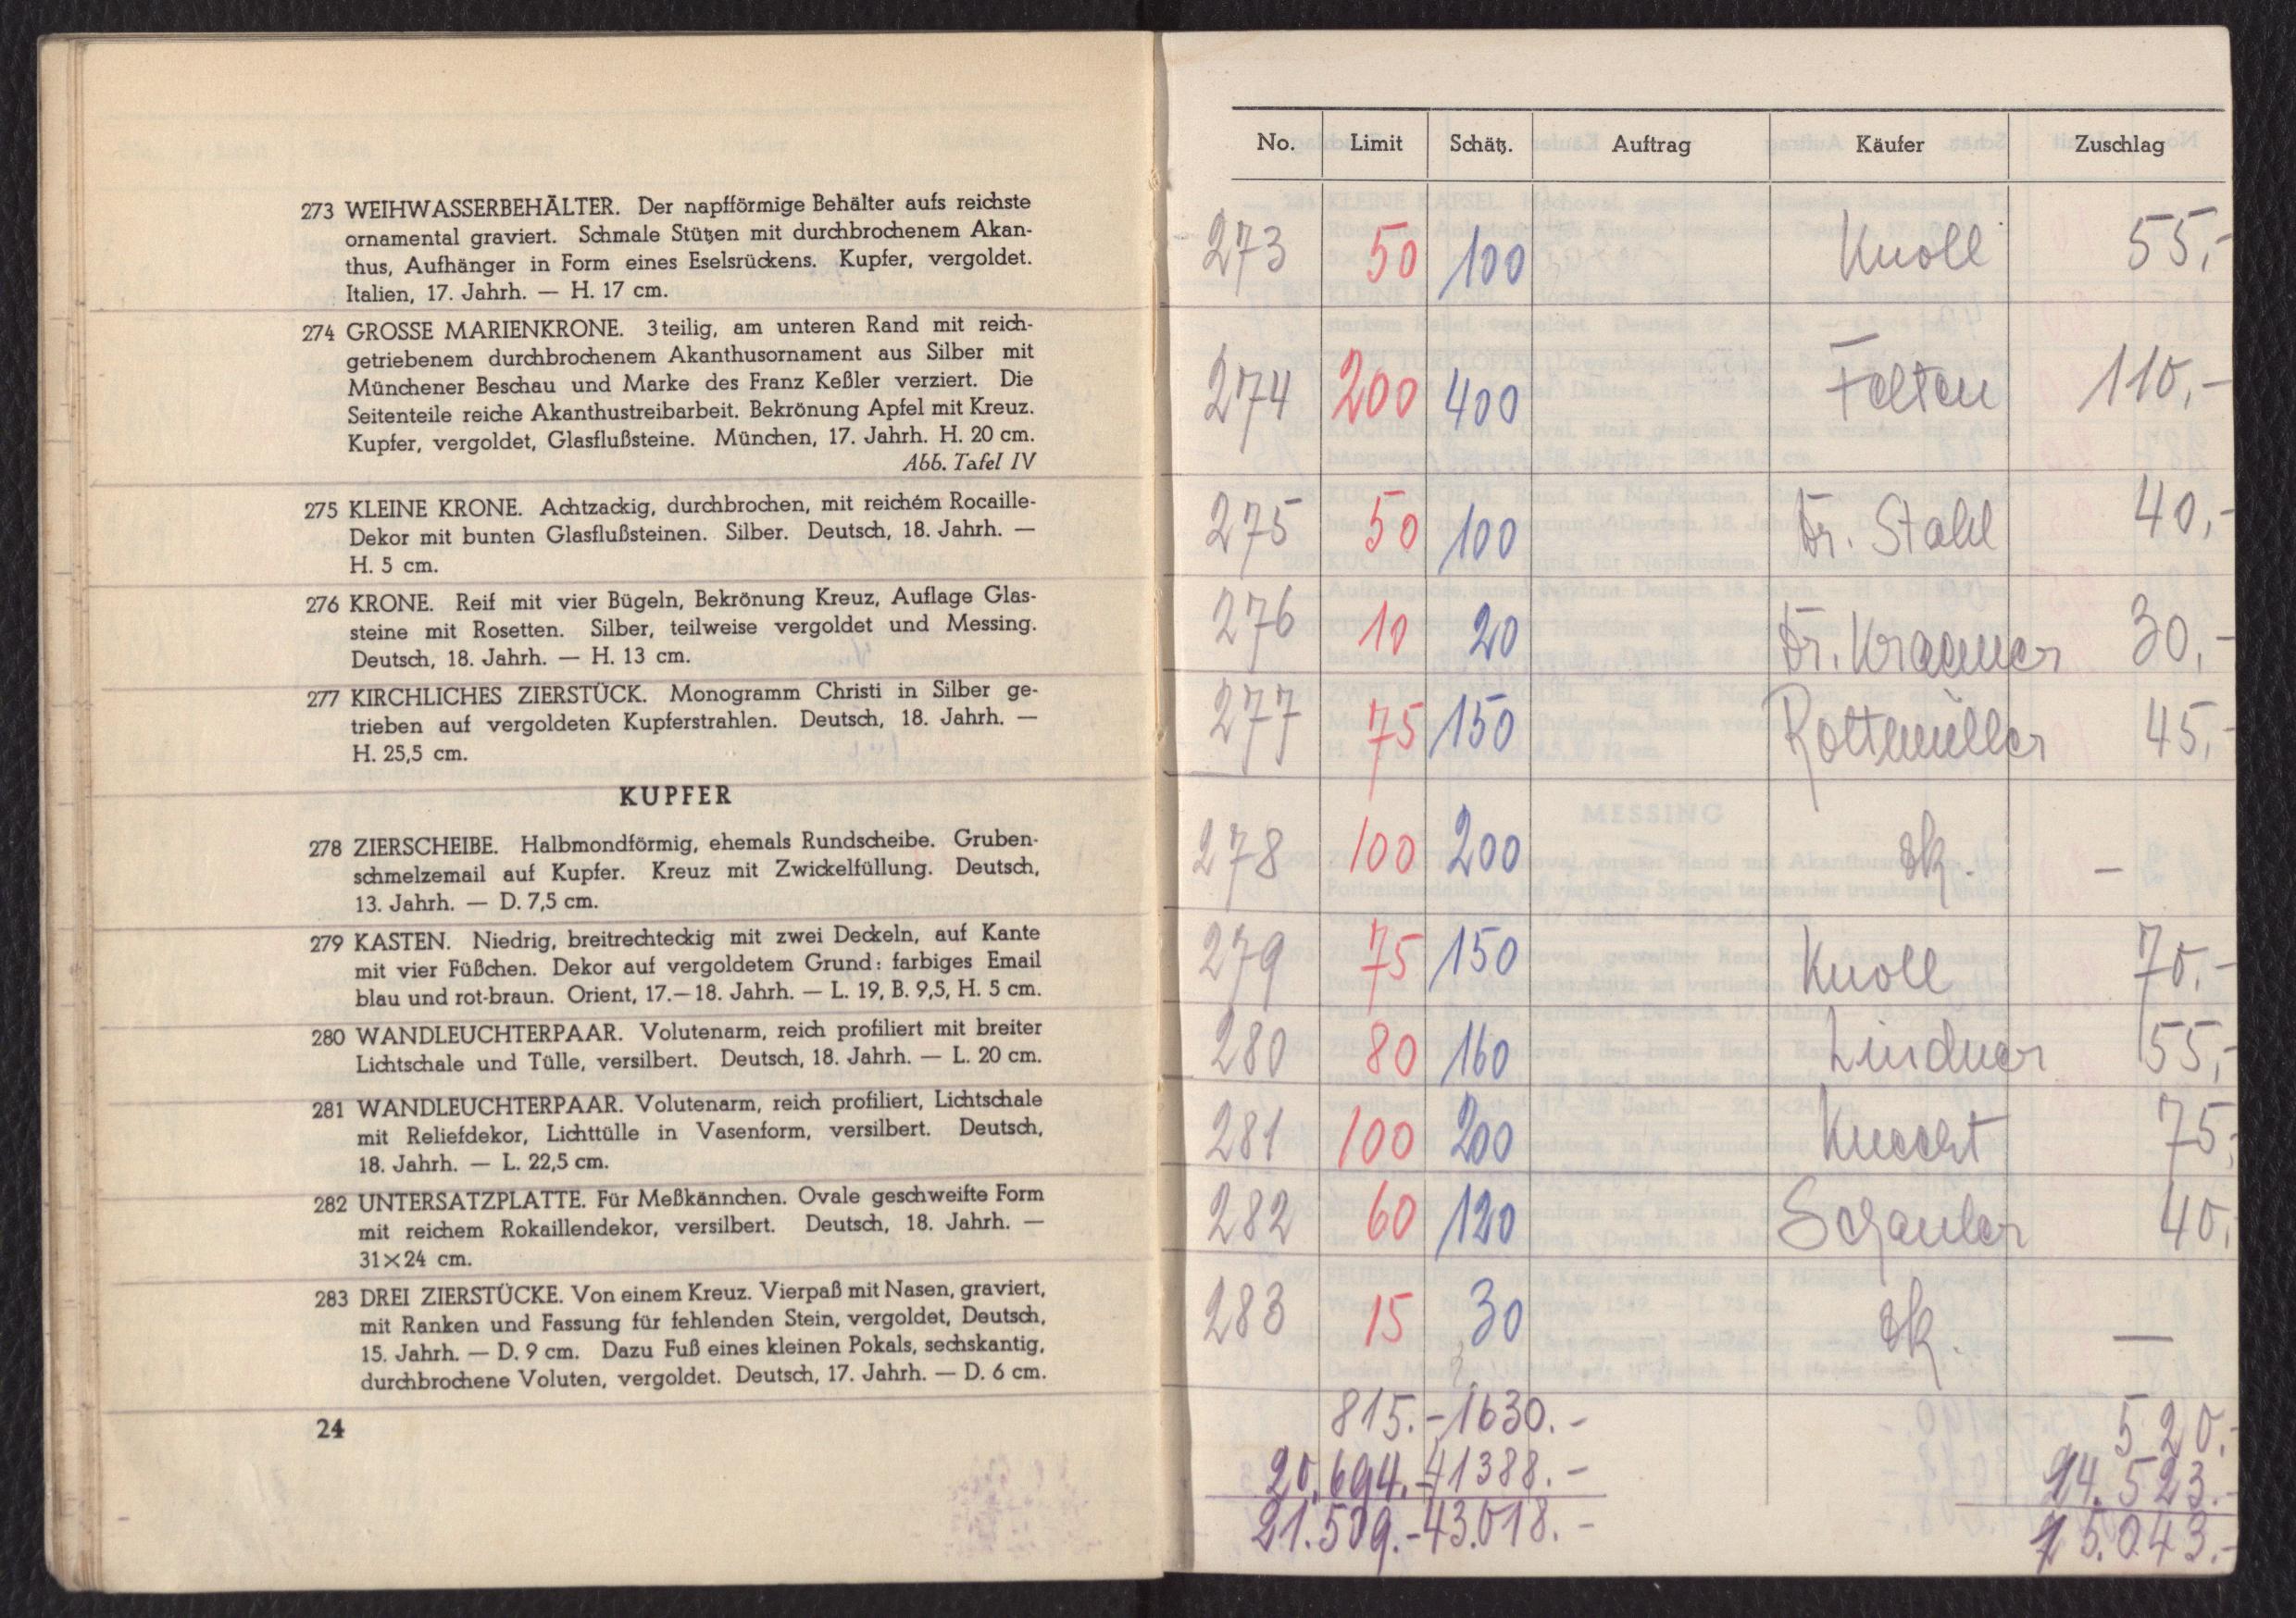 273 WEIHWASSERBEHÄLTER. Der napfförmige Behälter aufs reichste
ornamental graviert. Schmale Stützen mit durchbrochenem Akan-
thus, Aufhänger in Form eines Eselsrückens. Kupfer, vergoldet.
Italien, 17. Jahrh. — H. 17 cm.
274 GROSSE MARIENKRONE. 3teilig, am unteren Rand mit reich-
getriebenem durchbrochenem Akanthusornament aus Silber mit
Münchener Beschau und Marke des Franz Keßler verziert. Die
Seitenteile reiche Akanthustreibarbeit. Bekrönung Apfel mit Kreuz.
Kupfer, vergoldet, Glasflußsteine. München, 17. Jahrh. H. 20 cm.
Abb. Tafel IV
275 KLEINE KRONE. Achtzackig, durchbrochen, mit reichem Rocaille-
Dekor mit bunten Glasflußsteinen. Silber. Deutsch, 18. Jahrh. —
H. 5 cm.
276 KRONE. Reif mit vier Bügeln, Bekrönung Kreuz, Auflage Glas-
steine mit Rosetten. Silber, teilweise vergoldet und Messing.
Deutsch, 18. Jahrh. — H. 13 cm.
277 KIRCHLICHES ZIERSTÜCK. Monogramm Christi in Silber ge-
trieben auf vergoldeten Kupferstrahlen. Deutsch, 18. Jahrh. —
H. 25,5 cm.
KUPFER
278 ZIERSCHEIBE. Halbmondförmig, ehemals Rundscheibe. Gruben-
schmelzemail auf Kupfer. Kreuz mit Zwickelfüllung. Deutsch,
13. Jahrh. — D. 7,5 cm.
279 KASTEN. Niedrig, breitrechteckig mit zwei Deckeln, auf Kante
mit vier Füßchen. Dekor auf vergoldetem Grund: farbiges Email
blau und rot-braun. Orient, 17.—18. Jahrh. — L. 19, B. 9,5, H. 5 cm.
280 WANDLEUCHTERPAAR. Volutenarm, reich profiliert mit breiter
Lichtschale und Tülle, versilbert. Deutsch, 18. Jahrh. — L. 20 cm.
281 WANDLEUCHTERPAAR. Volutenarm, reich profiliert, Lichtschale
mit Reliefdekor, Lichttülle in Vasenform, versilbert. Deutsch,
18. Jahrh. — L. 22,5 cm.
282 UNTERSATZPLATTE. Für Meßkännchen. Ovale geschweifte Form
mit reichem Rokaillendekor, versilbert. Deutsch, 18. Jahrh. —
31×24 cm.
283 DREI ZIERSTÜCKE. Von einem Kreuz. Vierpaß mit Nasen, graviert,
mit Ranken und Fassung für fehlenden Stein, vergoldet, Deutsch,
15. Jahrh. — D. 9 cm. Dazu Fuß eines kleinen Pokals, sechskantig,
durchbrochene Voluten, vergoldet. Deutsch, 17. Jahrh. — D. 6 cm.
24
No. Limit Schätz. Auftrag Käufer Zuschlag
273 50 100 Knoll 55,-
274 200 400 Felten 110,-
275 50 100 Dr. Stahl 40,-
276 10 20 Dr. Kraemer 30,-
277 75 150 Rottmüller 45,-
278 100 200 zk. —
279 75 150 Knoll 70.-
280 80 160 Lindner 55,-
281 100 200 Knecht 75,-
282 60 120 Schauler 40,
283 15 30 zk. —
815.- 1630.- 520.-
20.694.- 41388.- 14.523.-
21.509.- 43.018.- 15.043.-
MESSING